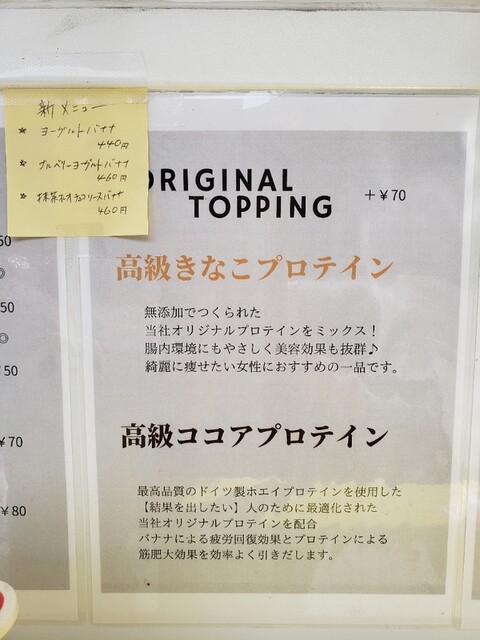 新メニュー
★ ヨーグルトバナナ
440円
★ ブルベリーヨーグルトバナナ
460円
★ 抹茶ホワイトチョコソースバナナ
460円
50
◎
50
◎
50
¥70
¥80
ORIGINAL
TOPPING
+¥70
高級きなこプロテイン
無添加でつくられた
当社オリジナルプロテインをミックス！
腸内環境にもやさしく美容効果も抜群♪
綺麗に痩せたい女性におすすめの一品です。
高級ココアプロテイン
最高品質のドイツ製ホエイプロテインを使用した
【結果を出したい】人のために最適化された
当社オリジナルプロテインを配合
バナナによる疲労回復効果とプロテインによる
筋肥大効果を効率よく引きだします。